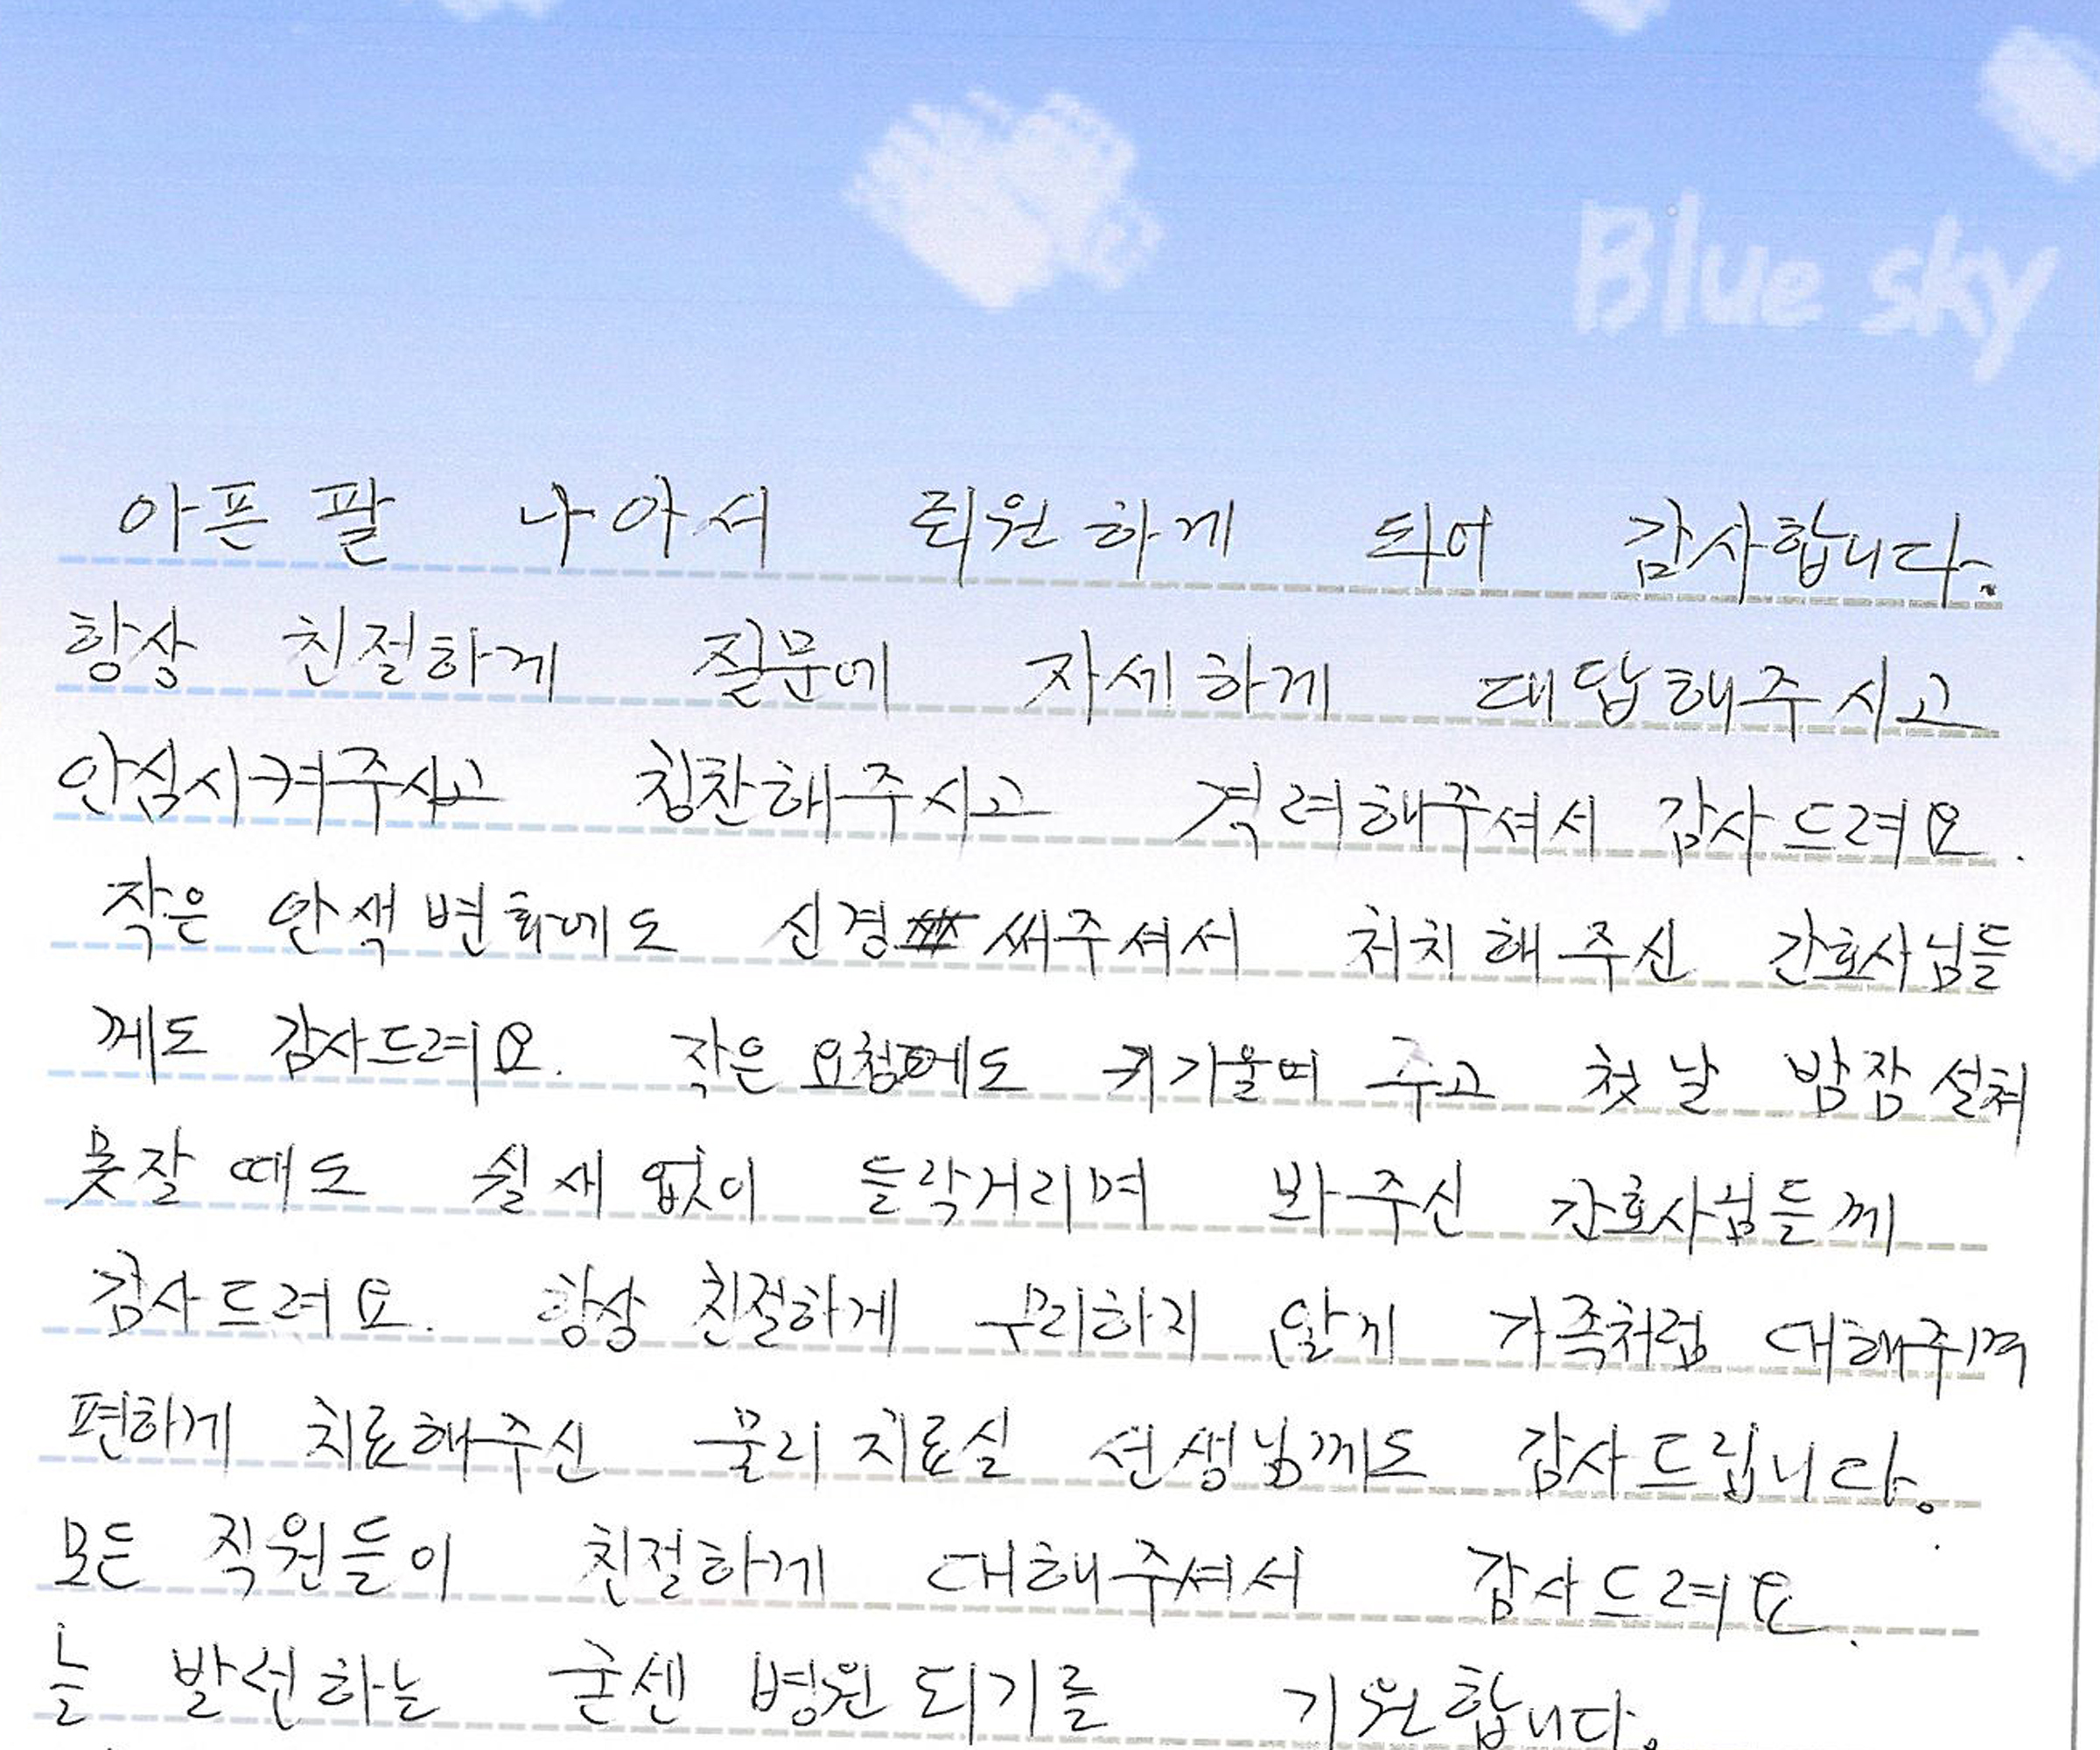 Blue sky
아픈 팔 나아서 퇴원하게 되어 감사합니다.
항상 친절하게 질문에 자세하게 대답해주시고
안심시켜주시고 칭찬해주시고 격려해주셔서 감사드려요.
작은 안색변화에도 신경 써주셔서 처치해주신 간호사님들
께도 감사드려요. 작은 요청에도 귀기울여 주고 첫날 밤잠 설쳐
못잘 때도 쉴새 없이 들락거리며 봐주신 간호사님들께
감사드려요. 항상 친절하게 무리하지 않게 가족처럼 대해주며
편하게 치료해주신 물리치료실 선생님께도 감사드립니다.
모든 직원들이 친절하게 대해주셔서 감사드려요.
늘 발전하는 굳센 병원 되기를 기원합니다.